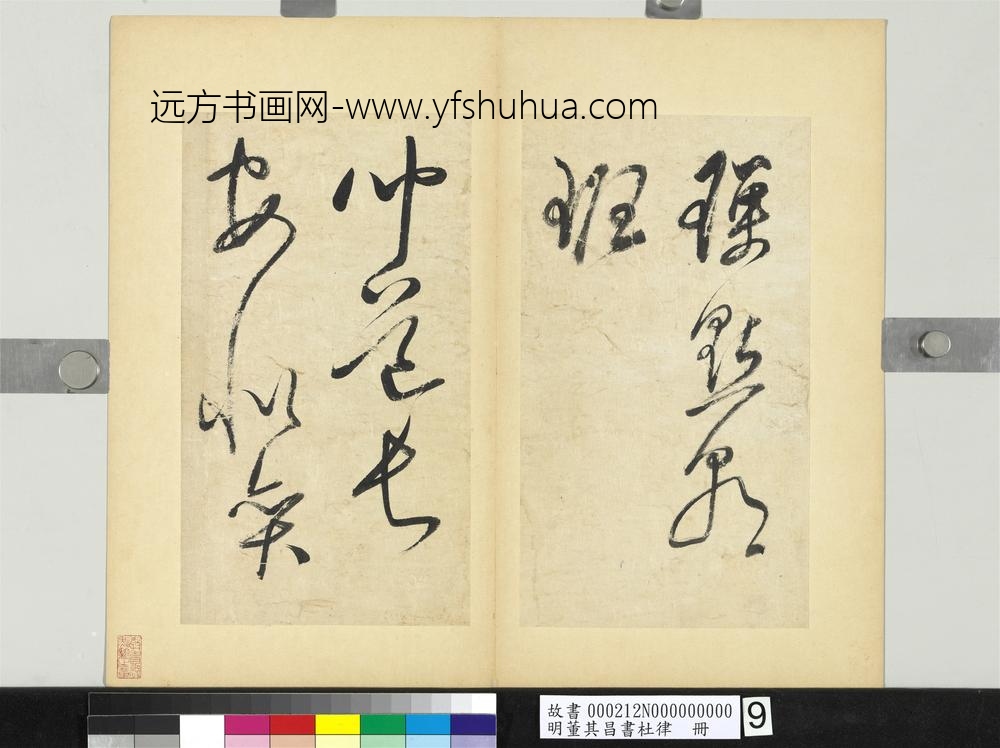 远方书画网-www.yfshuhua.com
瑣點朝
班
聞道長
安似奕
故書 000212N000000000
明董其昌書杜律 冊
9